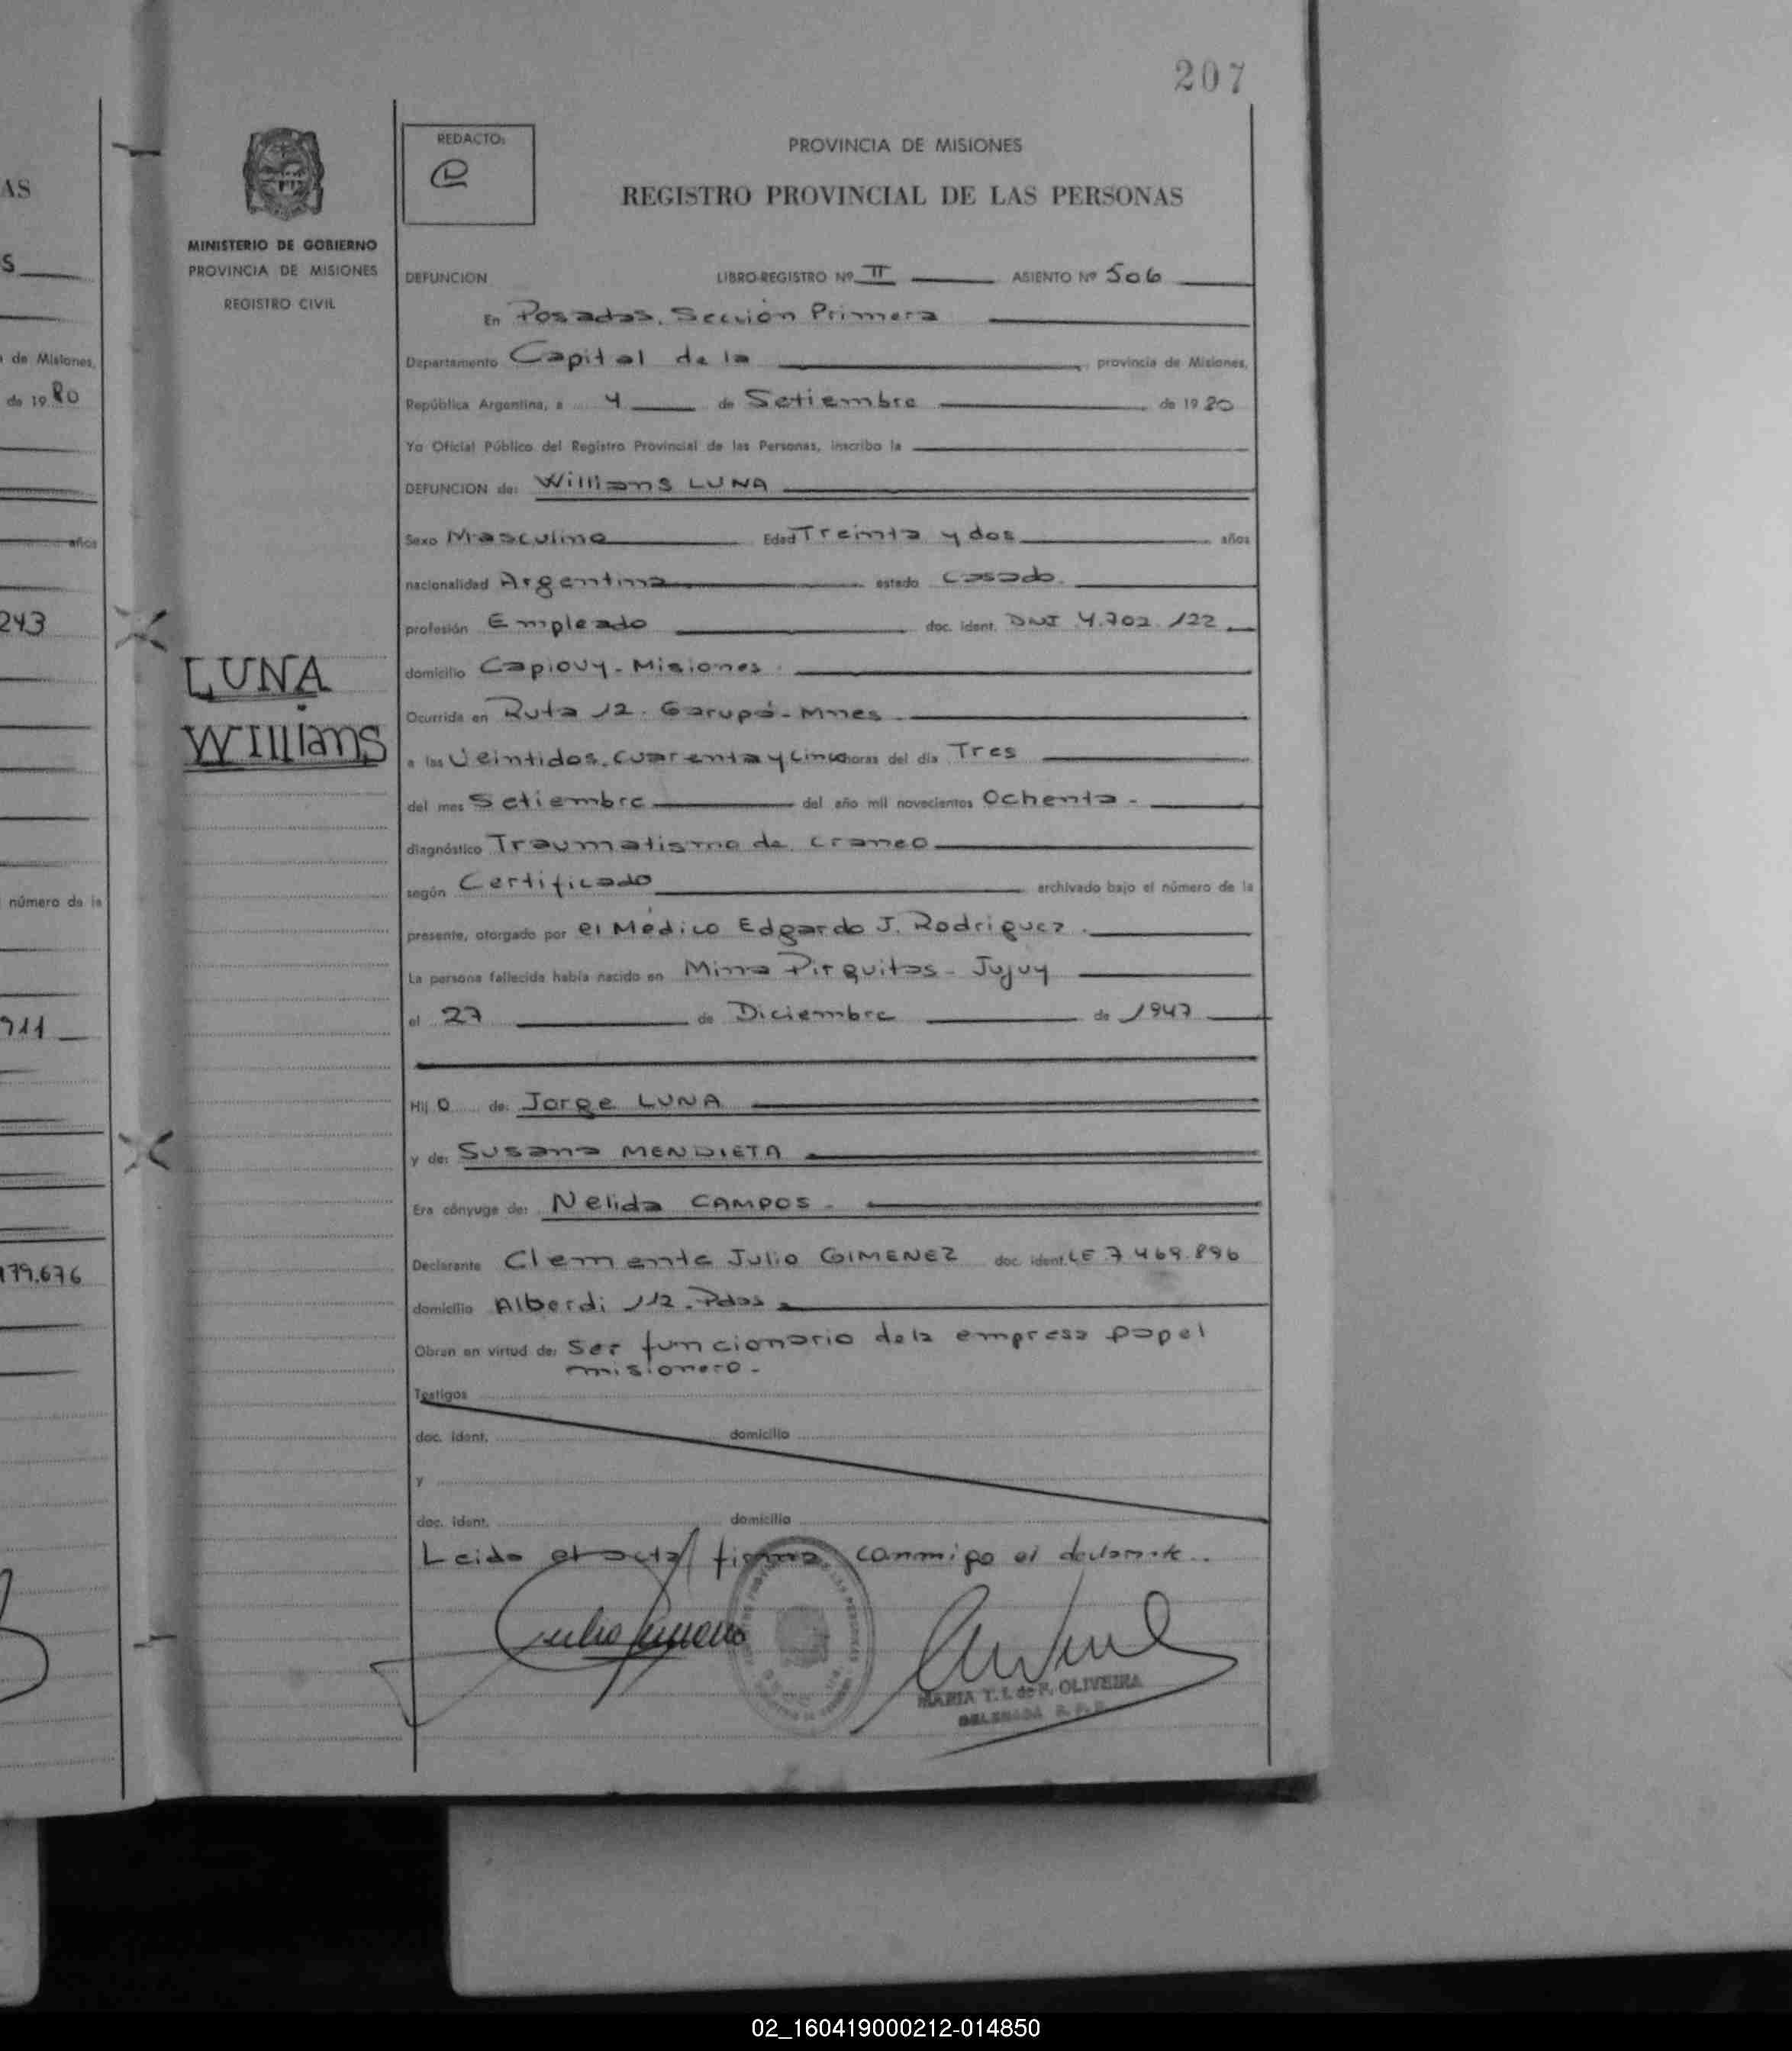 207
AS
S
de Misiones,
de 19 80
años
243
número de la
911
179.676
MINISTERIO DE GOBIERNO
PROVINCIA DE MISIONES
REGISTRO CIVIL
LUNA
Willians
REDACTO:
PROVINCIA DE MISIONES
REGISTRO PROVINCIAL DE LAS PERSONAS
DEFUNCION LIBRO-REGISTRO Nº II ASIENTO Nº 506
En Posadas. Sección Primera
Departamento Capital de la , provincia de Misiones,
República Argentina, a 4 de Setiembre de 19 80
Yo Oficial Público del Registro Provincial de las Personas, inscribo la
DEFUNCION de: Willians LUNA
Sexo Masculino Edad Treinta y dos años
nacionalidad Argentina estado casado.
profesión Empleado doc. ident. DNI 4.702.122
domicilio Capiovy - Misiones.
Ocurrida en Ruta 12. Garupá - Mnes
a las Veintidos. cuarenta y cinco horas del día Tres
del mes Setiembre del año mil novecientos Ochenta -
diagnóstico Traumatismo de craneo
según Certificado archivado bajo el número de la
presente, otorgado por el Médico Edgardo J. Rodriguez.
La persona fallecida había nacido en Mina Pirquitas - Jujuy
el 27 de Diciembre de 1947
Hij o de: Jorge LUNA
y de: Susana MENDIETA
Era cónyuge de: Nelida CAMPOS -
Declarante Clemente Julio GIMENEZ doc. ident. LE 7.469.896
domicilio Alberdi 112. Pdas
Obran en virtud de: Ser funcionario de la empresa papel
misionero -
Testigos
doc. ident. domicilio
y
doc. ident. domicilio
Leido el acta firma conmigo el declarante..
MARIA T. I. de F. OLIVEIRA
DELEGADA R. P. P.
02_160419000212-014850